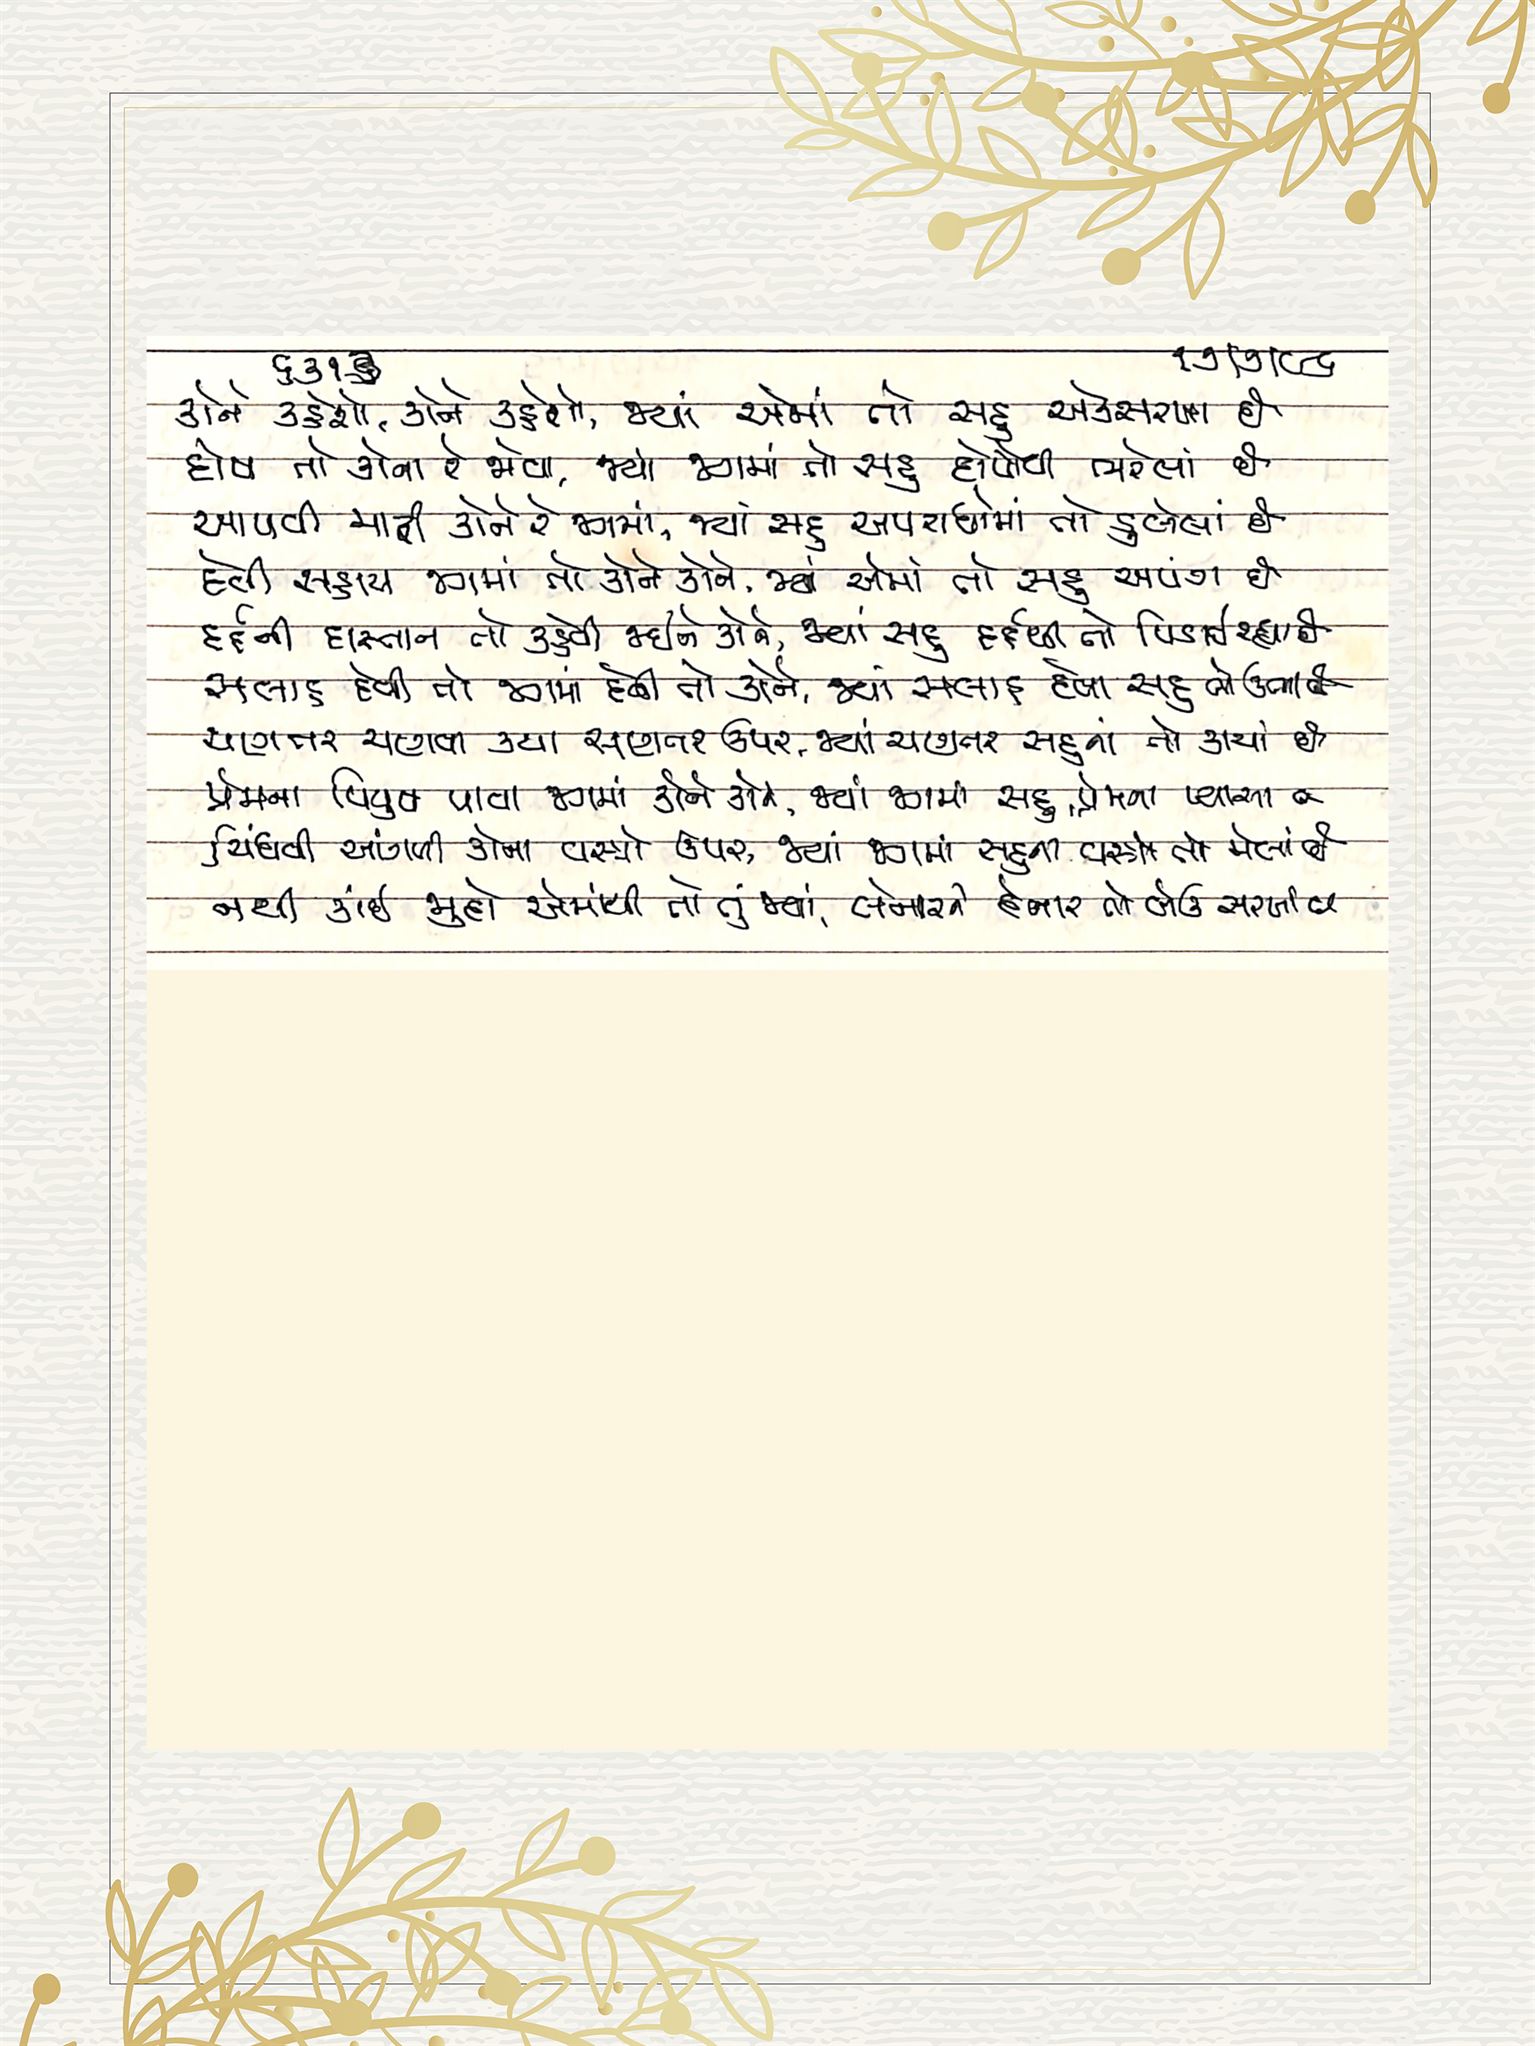 ૬૩૧૩ ૧૭/૭/૮૬
કોને કહેશો, કોને કહેશો, જ્યાં એમાં તો સહુ એકસરખા છે
દોષ તો કોના રે જોવા, જ્યાં જગમાં તો સહુ દોષોથી ભરેલાં છે
આપવી માફી કોને રે જગમાં, જ્યાં સહુ અપરાધોમાં તો ડુબેલાં છે
દેવી સહાય જગમાં તો કોને કોને, જ્યાં એમાં તો સહુ અપંગ છે
દર્દની દાસ્તાન તો કહેવી જઈને કોને, જ્યાં સહુ દર્દથી તો પિડાઈ રહ્યા છે
સલાહ દેવી તો જગમાં દેવી તો કોને, જ્યાં સલાહ દેવા સહુ તો ઉભા છે
ચણતર ચણવા ક્યા ચણતર ઉપર, જ્યાં ચણતર સહુનાં તો કાચાં છે
પ્રેમના પિયુષ પાવા જગમાં કોને કોને, જ્યાં જગમાં સહુ પ્રેમના પ્યાસા છે
ચિંધવી આંગળી કોના વસ્ત્રો ઉપર, જ્યાં જગમાં સહુના વસ્ત્રો તો મેલાં છે
નથી કાંઈ જુદો એમાંથી તો તું જ્યાં, લેનારને દેનાર તો બેઉ સરખાં છે